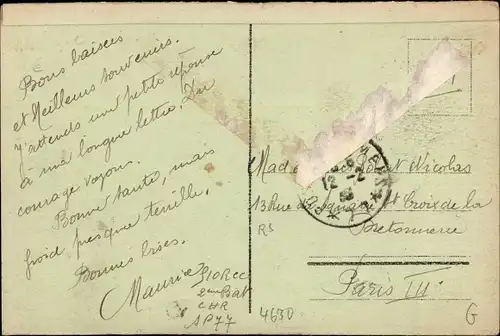 Bons baisers
et Meilleurs souvenirs.
J'attends une petite réponse
à ma longue lettre. Du
courage voyons.
Bonne santé, mais
froid presque
Bonnes bises.
Maurice
510 RCC
2eme Bat
CHR
SP 77
Mad
Nicolas
13 Rue St Croix de la
Bretonnerie
Paris III
4630
G